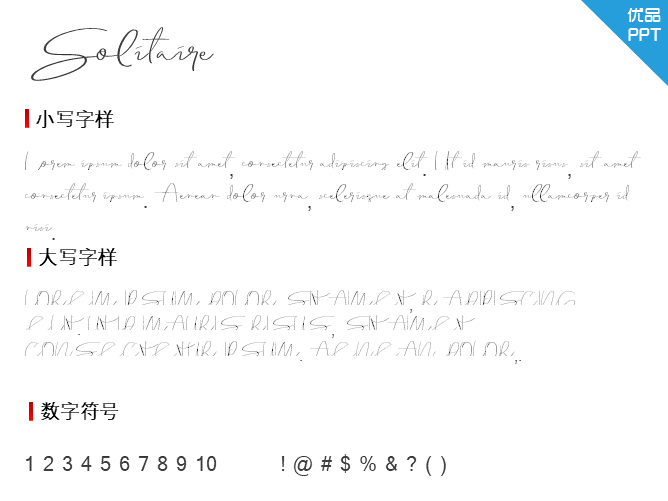 优品
PPT
Solitaire
小写字样
Lorem ipsum dolor sit amet, consectetur adipiscing elit. Ut id mauris risus, sit amet
consectetur ipsum. Aenean dolor urna, scelerisque at malesuada id, ullamcorper id
nisi.
大写字样
LOREM IPSUM DOLOR SIT AMET, R ADIPISCING
ELIT. UT ID MAURIS RISUS, SIT AMET
CONSECTETUR IPSUM. AENEAN DOLOR,.
数字符号
1 2 3 4 5 6 7 8 9 10 ! @ # $ % & ? ( )